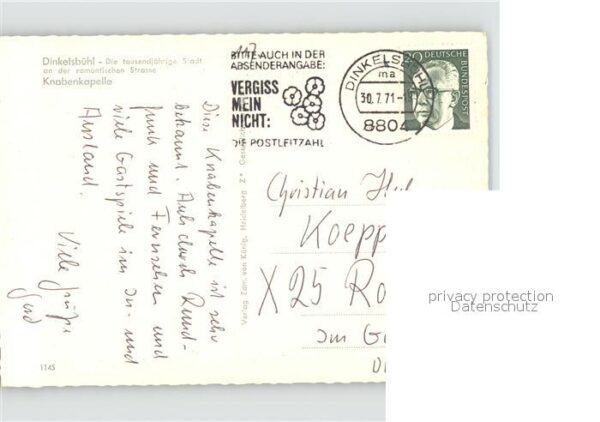 Dinkelsbühl - Die tausendjährige Stadt
an der romantischen Strasse
Knabenkapelle
Diese Knabenkapelle ist sehr
bekannt. Auch durch Rund-
funk und Fernsehen und
viele Gastspiele im In- und
Ausland.
Viele Grüße
Gerd
1145
Verlag Zanr. von König, Heidelberg
117
BITTE AUCH IN DER
ABSENDERANGABE:
VERGISS
MEIN
NICHT:
DIE POSTLEITZAHL
DINKELSBÜHL
ma
30.7.71-
8804
20
DEUTSCHE
BUNDESPOST
Christian
Koepp
X 25 Ro
Im G
privacy protection
Datenschutz